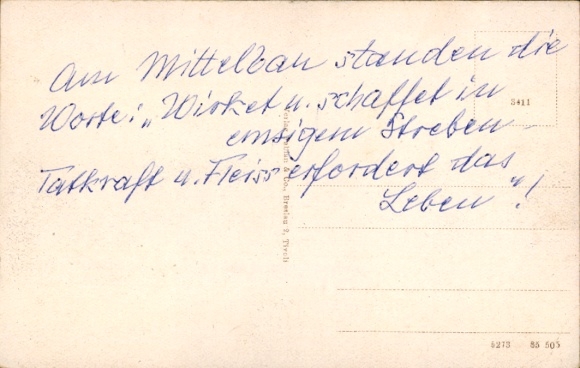 Am Mittelbau standen die
Worte: „Wirket u. schaffet in
emsigem Streben -
Tatkraft u. Fleiss erfordert das
Leben"!
3411
& Co., Breslau 2, Tivoli
5273 85 505